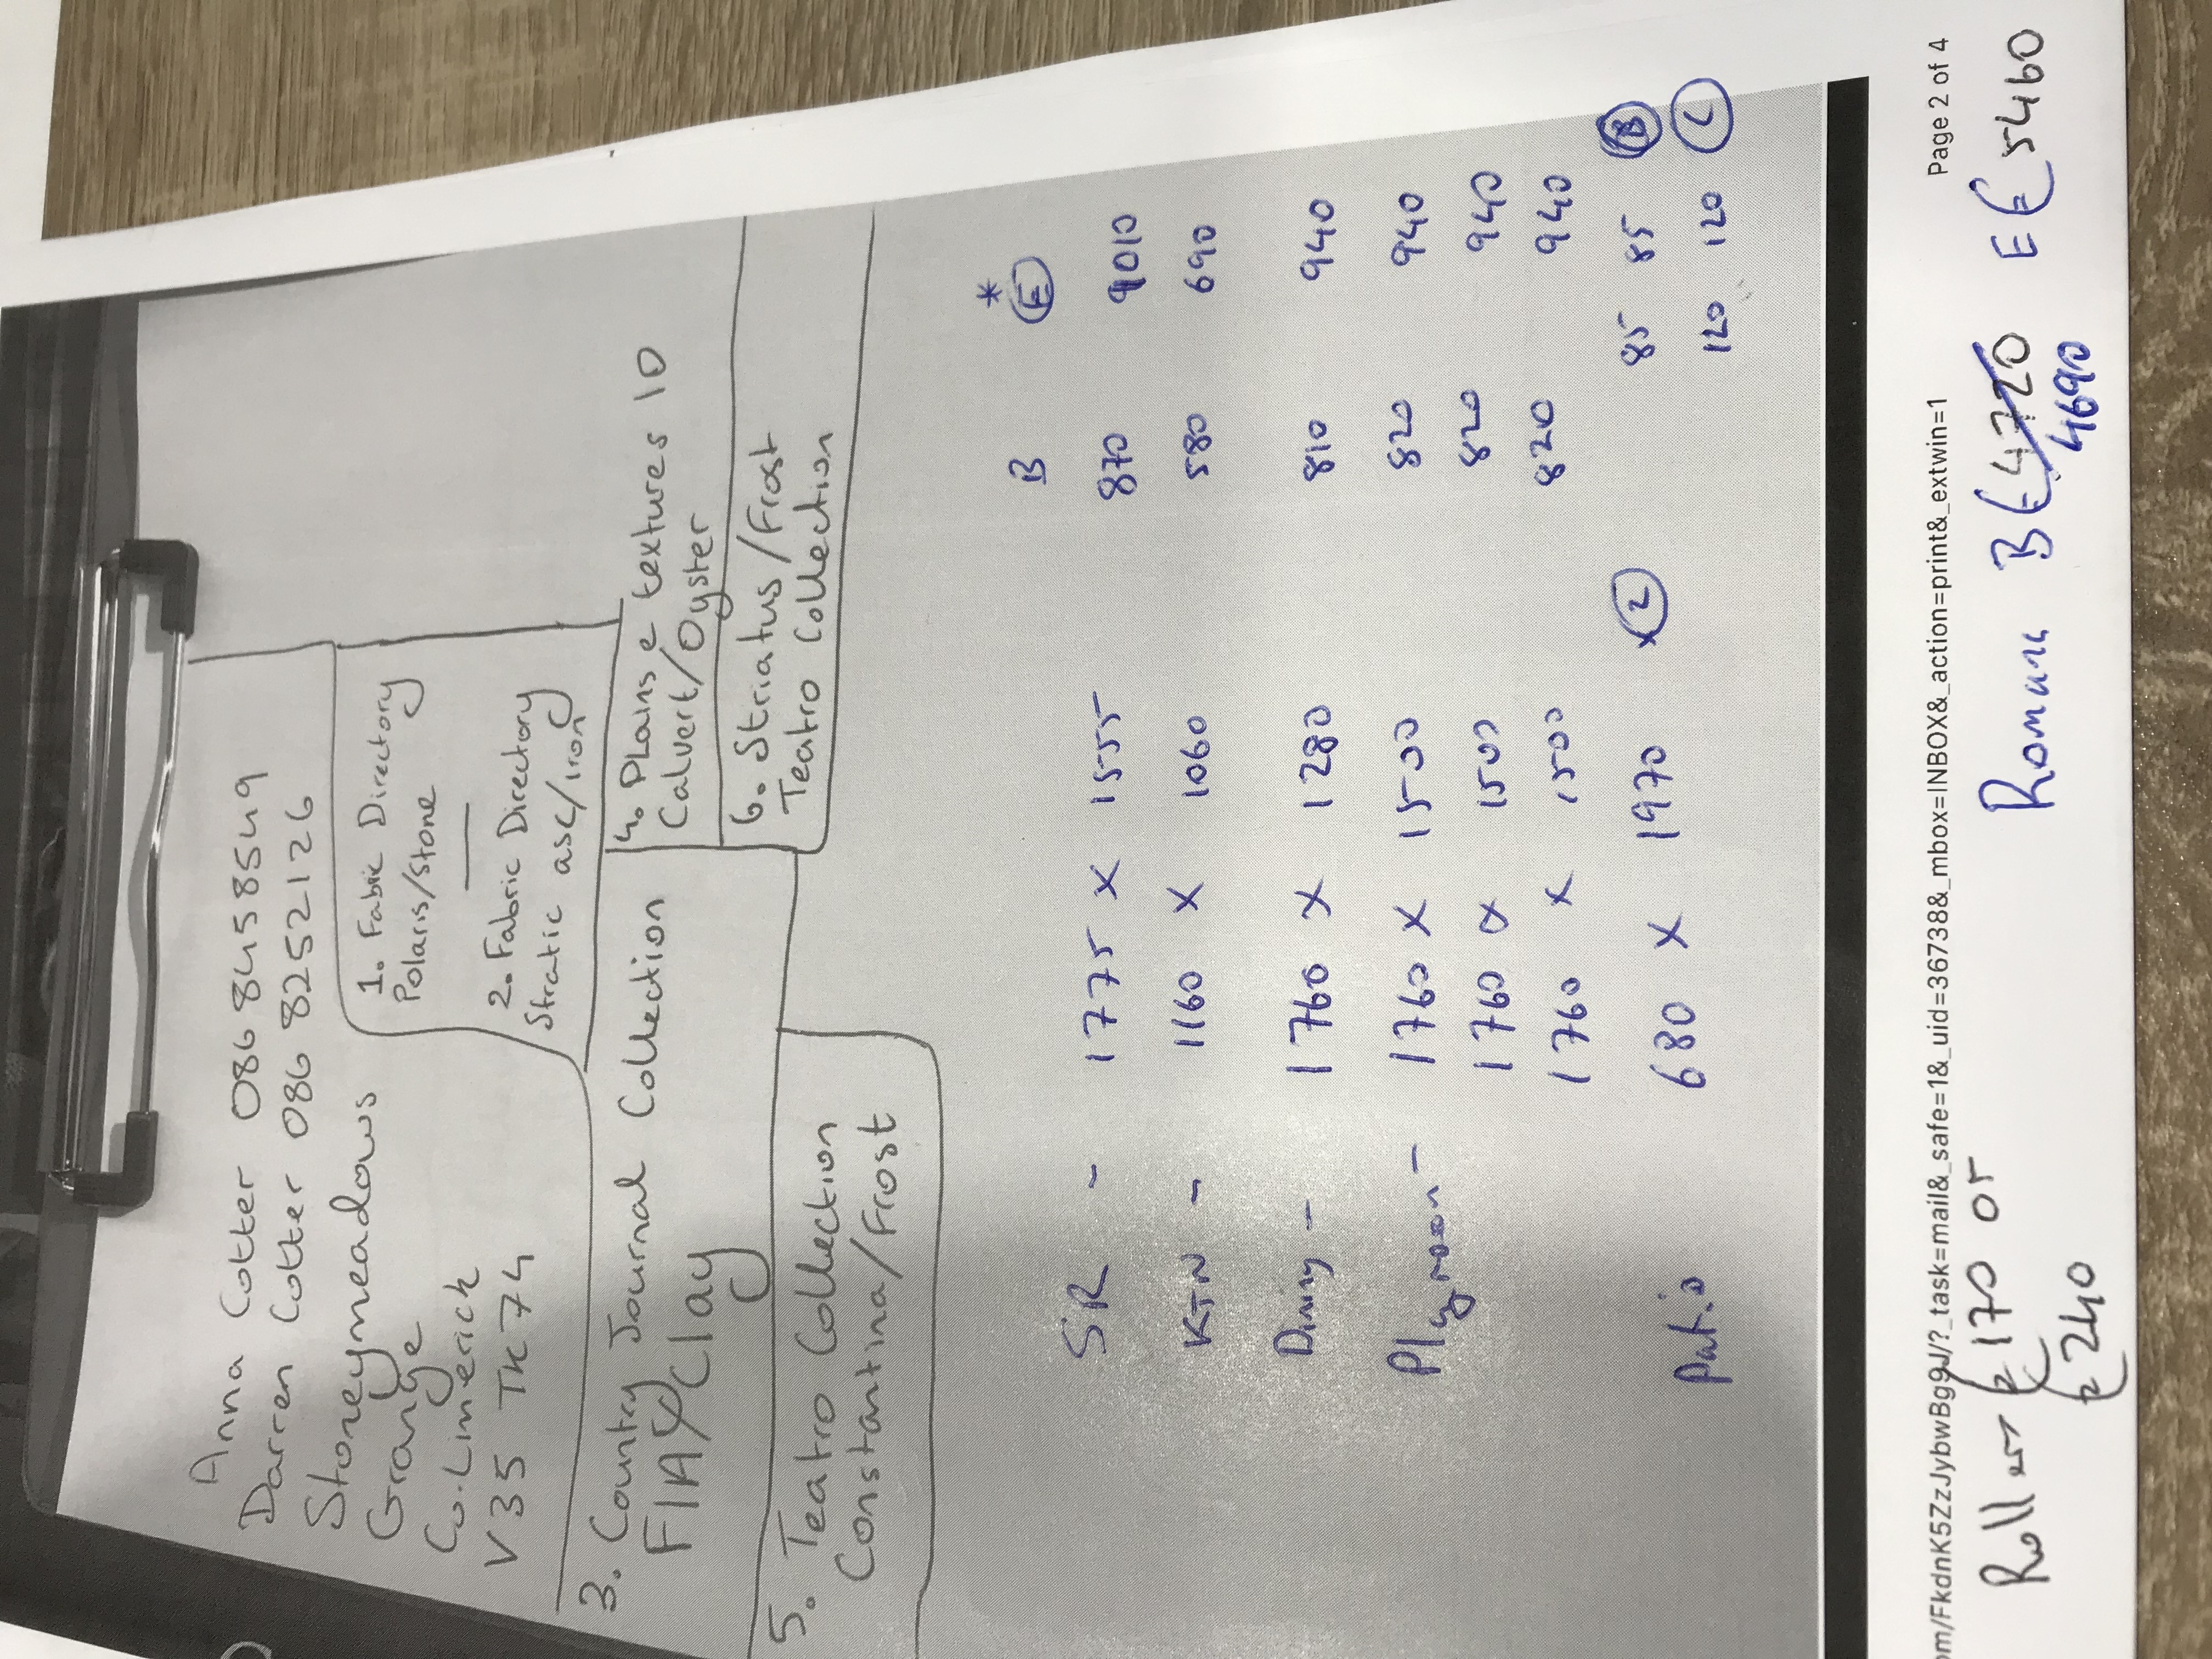 Anna Cotter 086 8458549
Darren Cotter 086 8252126
Stoneymeadows
Grange
Co. Limerick
V35 TK74
1. Fabric Directory
Polaris/Stone
2. Fabric Directory
Stratic as4/iron
3. Country Journal Collection
Clay
4. Plains e textures 10
Calvert/Oyster
5. Teatro Collection
Constantina/Frost
6. Striatus/Frost
Teatro Collection
B *E
SR - 1775 x 1555 870 1010
KTN - 1160 x 1060 580 690
Dining - 1760 x 1280 810 940
Plyroom - 1760 x 1500 820 940
1760 x 1500 820 940
1760 x 1500 820 940
Patio 680 x 1970 x2 85 85 B
120 120 C
om/FkdnK5ZzJybwBg9J/?_task=mail&_safe=1&_uid=36738&_mbox=INBOX&_action=print&_extwin=1 Page 2 of 4
Roller €170 or
€240
Romans B €4720 E €5460
4690